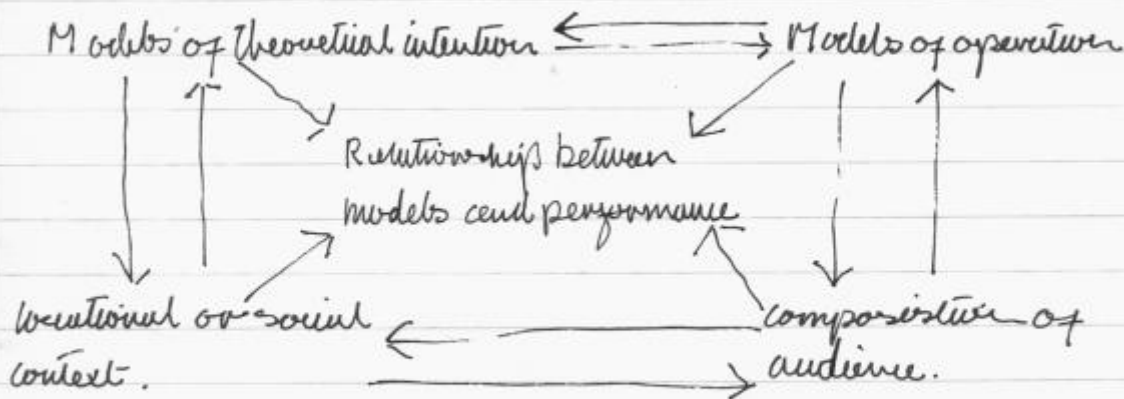 Models of theoretical intention
Models of operation
Relationship between
models and performance
locational or social
context.
composistion of
audience.